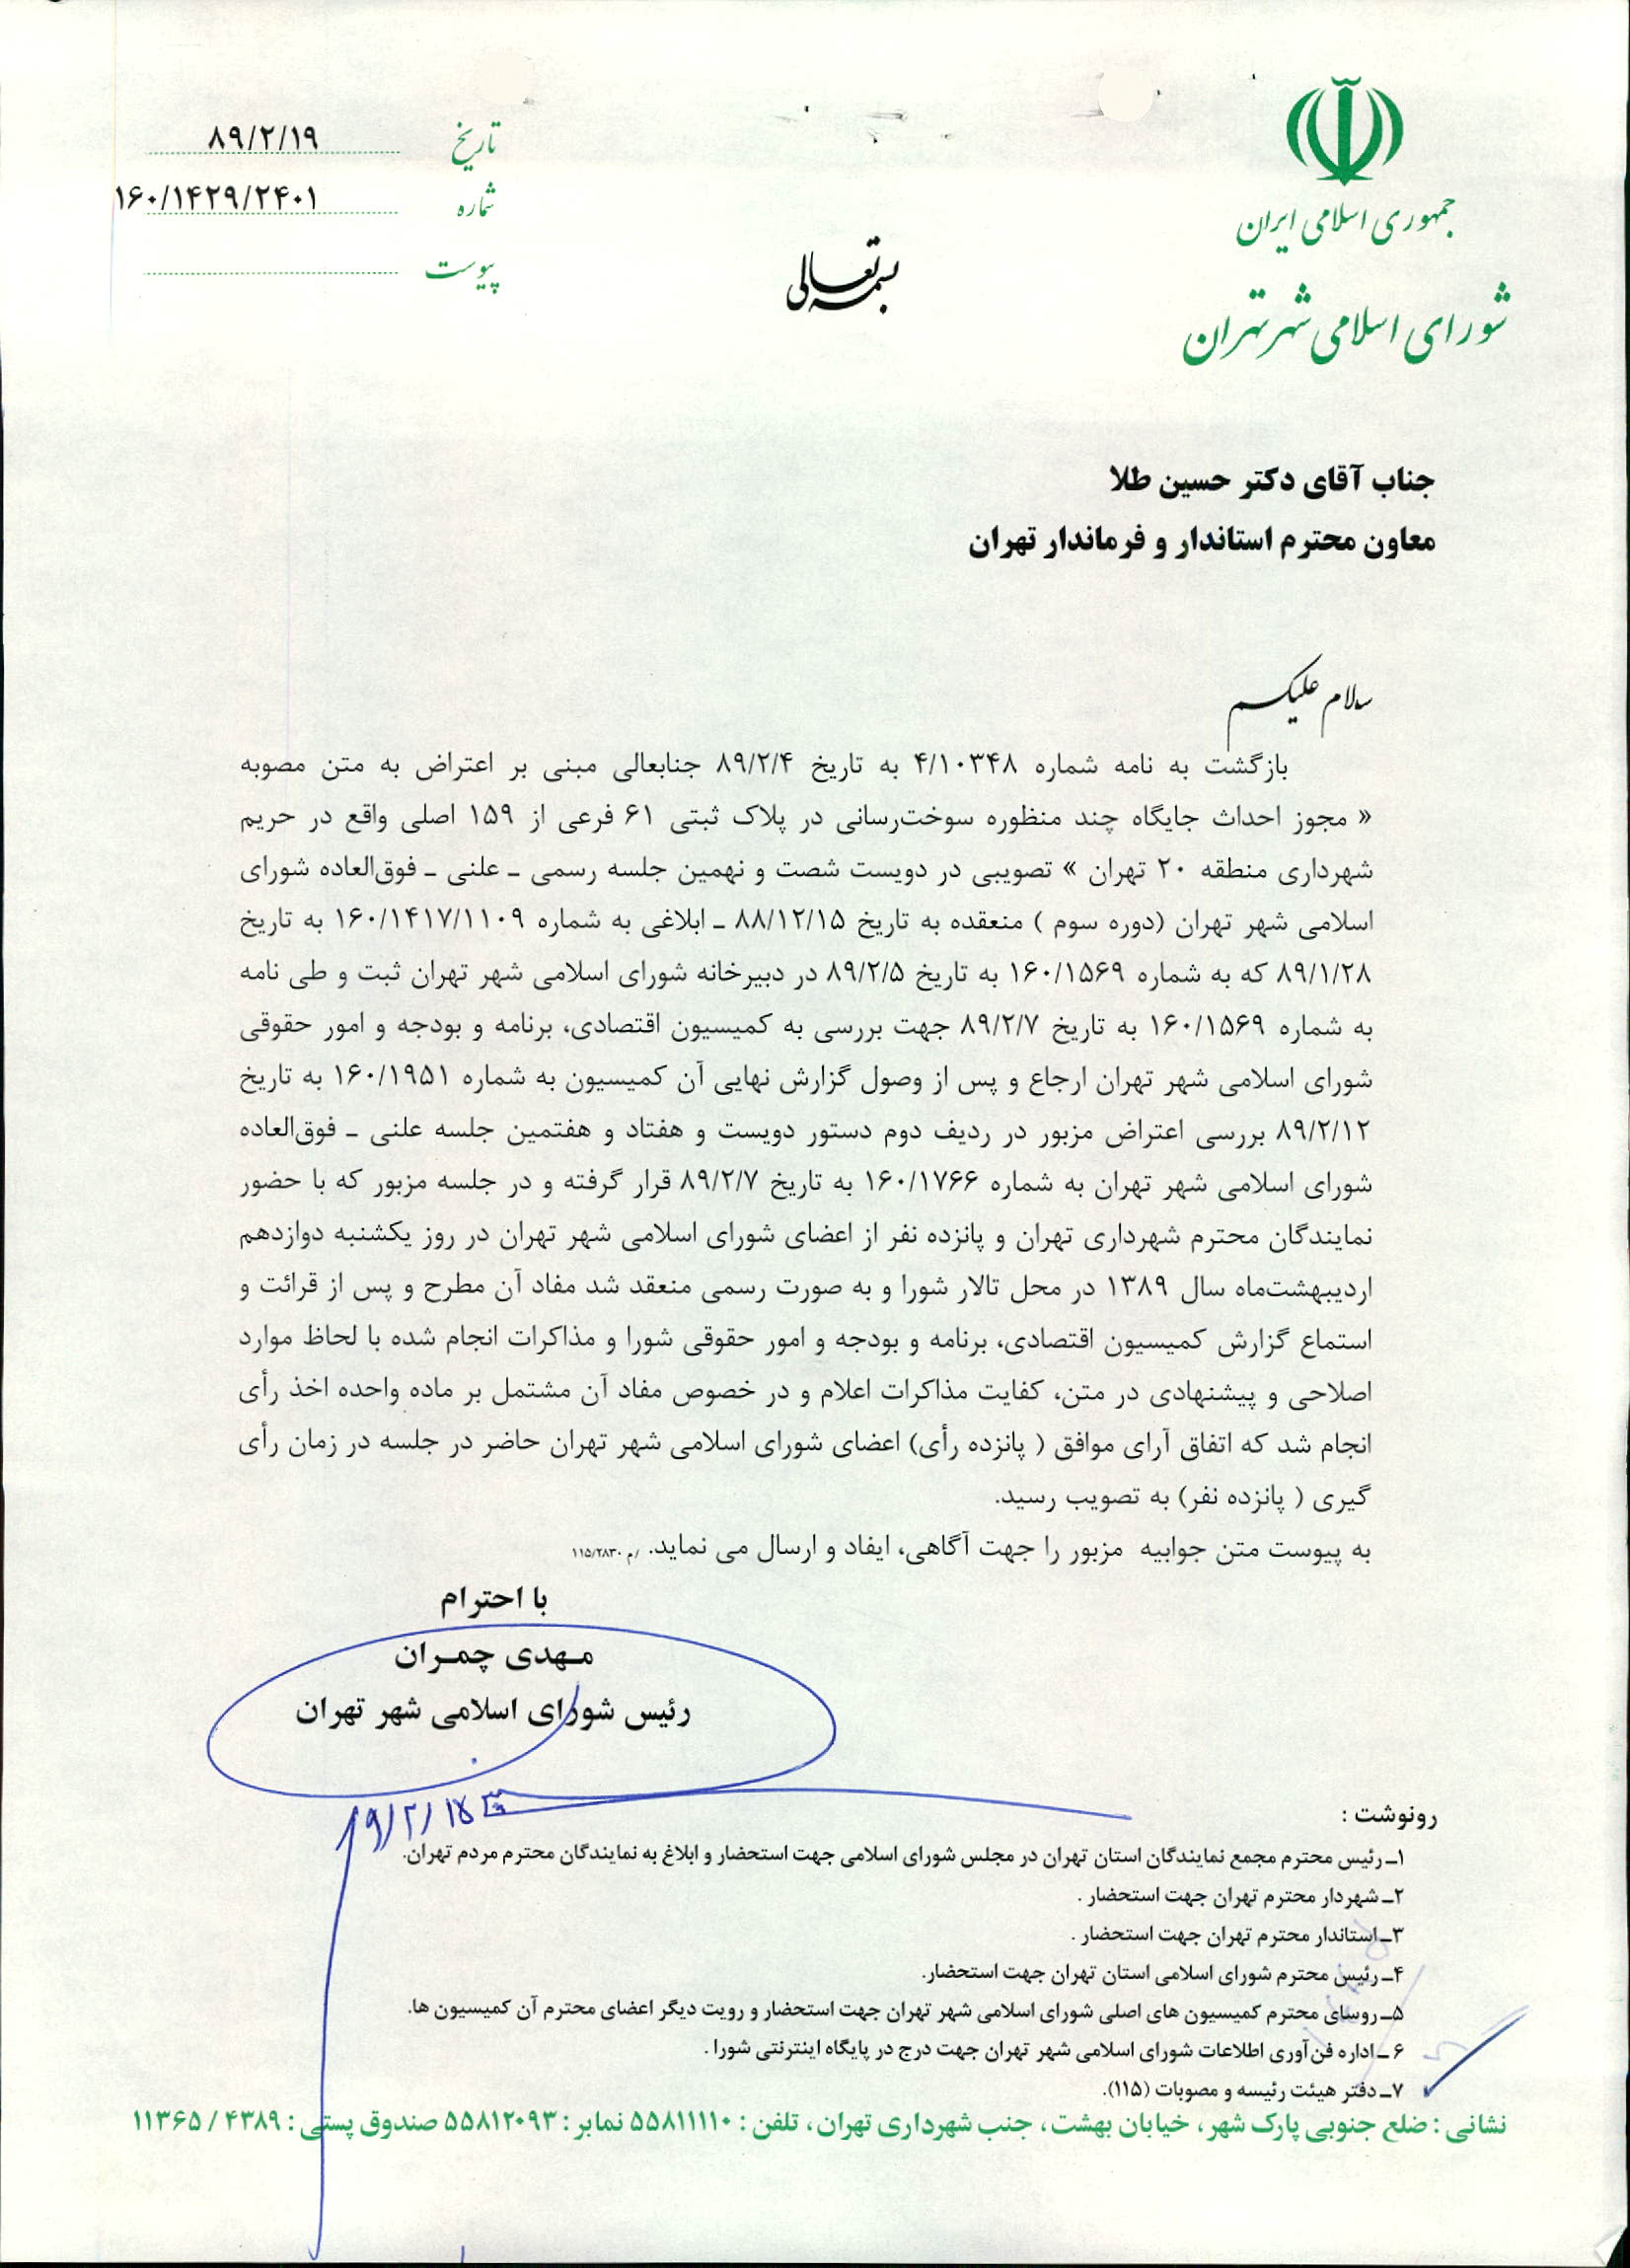 جمهوری اسلامی ایران
شورای اسلامی شهر تهران
بسمه تعالی
تاریخ ۸۹/۲/۱۹
شماره ۱۶۰/۱۴۲۹/۲۴۰۱
پیوست
جناب آقای دکتر حسین طلا
معاون محترم استاندار و فرماندار تهران
سلام علیکم
بازگشت به نامه شماره ۴/۱۰۳۴۸ به تاریخ ۸۹/۲/۴ جنابعالی مبنی بر اعتراض به متن مصوبه
« مجوز احداث جایگاه چند منظوره سوخت‌رسانی در پلاک ثبتی ۶۱ فرعی از ۱۵۹ اصلی واقع در حریم
شهرداری منطقه ۲۰ تهران » تصویبی در دویست شصت و نهمین جلسه رسمی ـ علنی ـ فوق‌العاده شورای
اسلامی شهر تهران (دوره سوم ) منعقده به تاریخ ۸۸/۱۲/۱۵ ـ ابلاغی به شماره ۱۶۰/۱۴۱۷/۱۱۰۹ به تاریخ
۸۹/۱/۲۸ که به شماره ۱۶۰/۱۵۶۹ به تاریخ ۸۹/۲/۵ در دبیرخانه شورای اسلامی شهر تهران ثبت و طی نامه
به شماره ۱۶۰/۱۵۶۹ به تاریخ ۸۹/۲/۷ جهت بررسی به کمیسیون اقتصادی، برنامه و بودجه و امور حقوقی
شورای اسلامی شهر تهران ارجاع و پس از وصول گزارش نهایی آن کمیسیون به شماره ۱۶۰/۱۹۵۱ به تاریخ
۸۹/۲/۱۲ بررسی اعتراض مزبور در ردیف دوم دستور دویست و هفتاد و هفتمین جلسه علنی ـ فوق‌العاده
شورای اسلامی شهر تهران به شماره ۱۶۰/۱۷۶۶ به تاریخ ۸۹/۲/۷ قرار گرفته و در جلسه مزبور که با حضور
نمایندگان محترم شهرداری تهران و پانزده نفر از اعضای شورای اسلامی شهر تهران در روز یکشنبه دوازدهم
اردیبهشت‌ماه سال ۱۳۸۹ در محل تالار شورا و به صورت رسمی منعقد شد مفاد آن مطرح و پس از قرائت و
استماع گزارش کمیسیون اقتصادی، برنامه و بودجه و امور حقوقی شورا و مذاکرات انجام شده با لحاظ موارد
اصلاحی و پیشنهادی در متن، کفایت مذاکرات اعلام و در خصوص مفاد آن مشتمل بر ماده واحده اخذ رأی
انجام شد که اتفاق آرای موافق ( پانزده رأی) اعضای شورای اسلامی شهر تهران حاضر در جلسه در زمان رأی
گیری ( پانزده نفر) به تصویب رسید.
به پیوست متن جوابیه مزبور را جهت آگاهی، ایفاد و ارسال می نماید. /م ۱۱۵/۲۸۳۰
با احترام
مهدی چمران
رئیس شورای اسلامی شهر تهران
رونوشت :
۱ـ رئیس محترم مجمع نمایندگان استان تهران در مجلس شورای اسلامی جهت استحضار و ابلاغ به نمایندگان محترم مردم تهران.
۲ـ شهردار محترم تهران جهت استحضار .
۳ـ استاندار محترم تهران جهت استحضار .
۴ـ رئیس محترم شورای اسلامی استان تهران جهت استحضار.
۵ـ روسای محترم کمیسیون های اصلی شورای اسلامی شهر تهران جهت استحضار و رویت دیگر اعضای محترم آن کمیسیون ها.
۶ـ اداره فن‌آوری اطلاعات شورای اسلامی شهر تهران جهت درج در پایگاه اینترنتی شورا .
۷ـ دفتر هیئت رئیسه و مصوبات (۱۱۵).
نشانی : ضلع جنوبی پارک شهر ، خیابان بهشت ، جنب شهرداری تهران ، تلفن : ۵۵۸۱۱۱۱۰ نمابر : ۵۵۸۱۲۰۹۳ صندوق پستی : ۴۳۸۹ / ۱۱۳۶۵